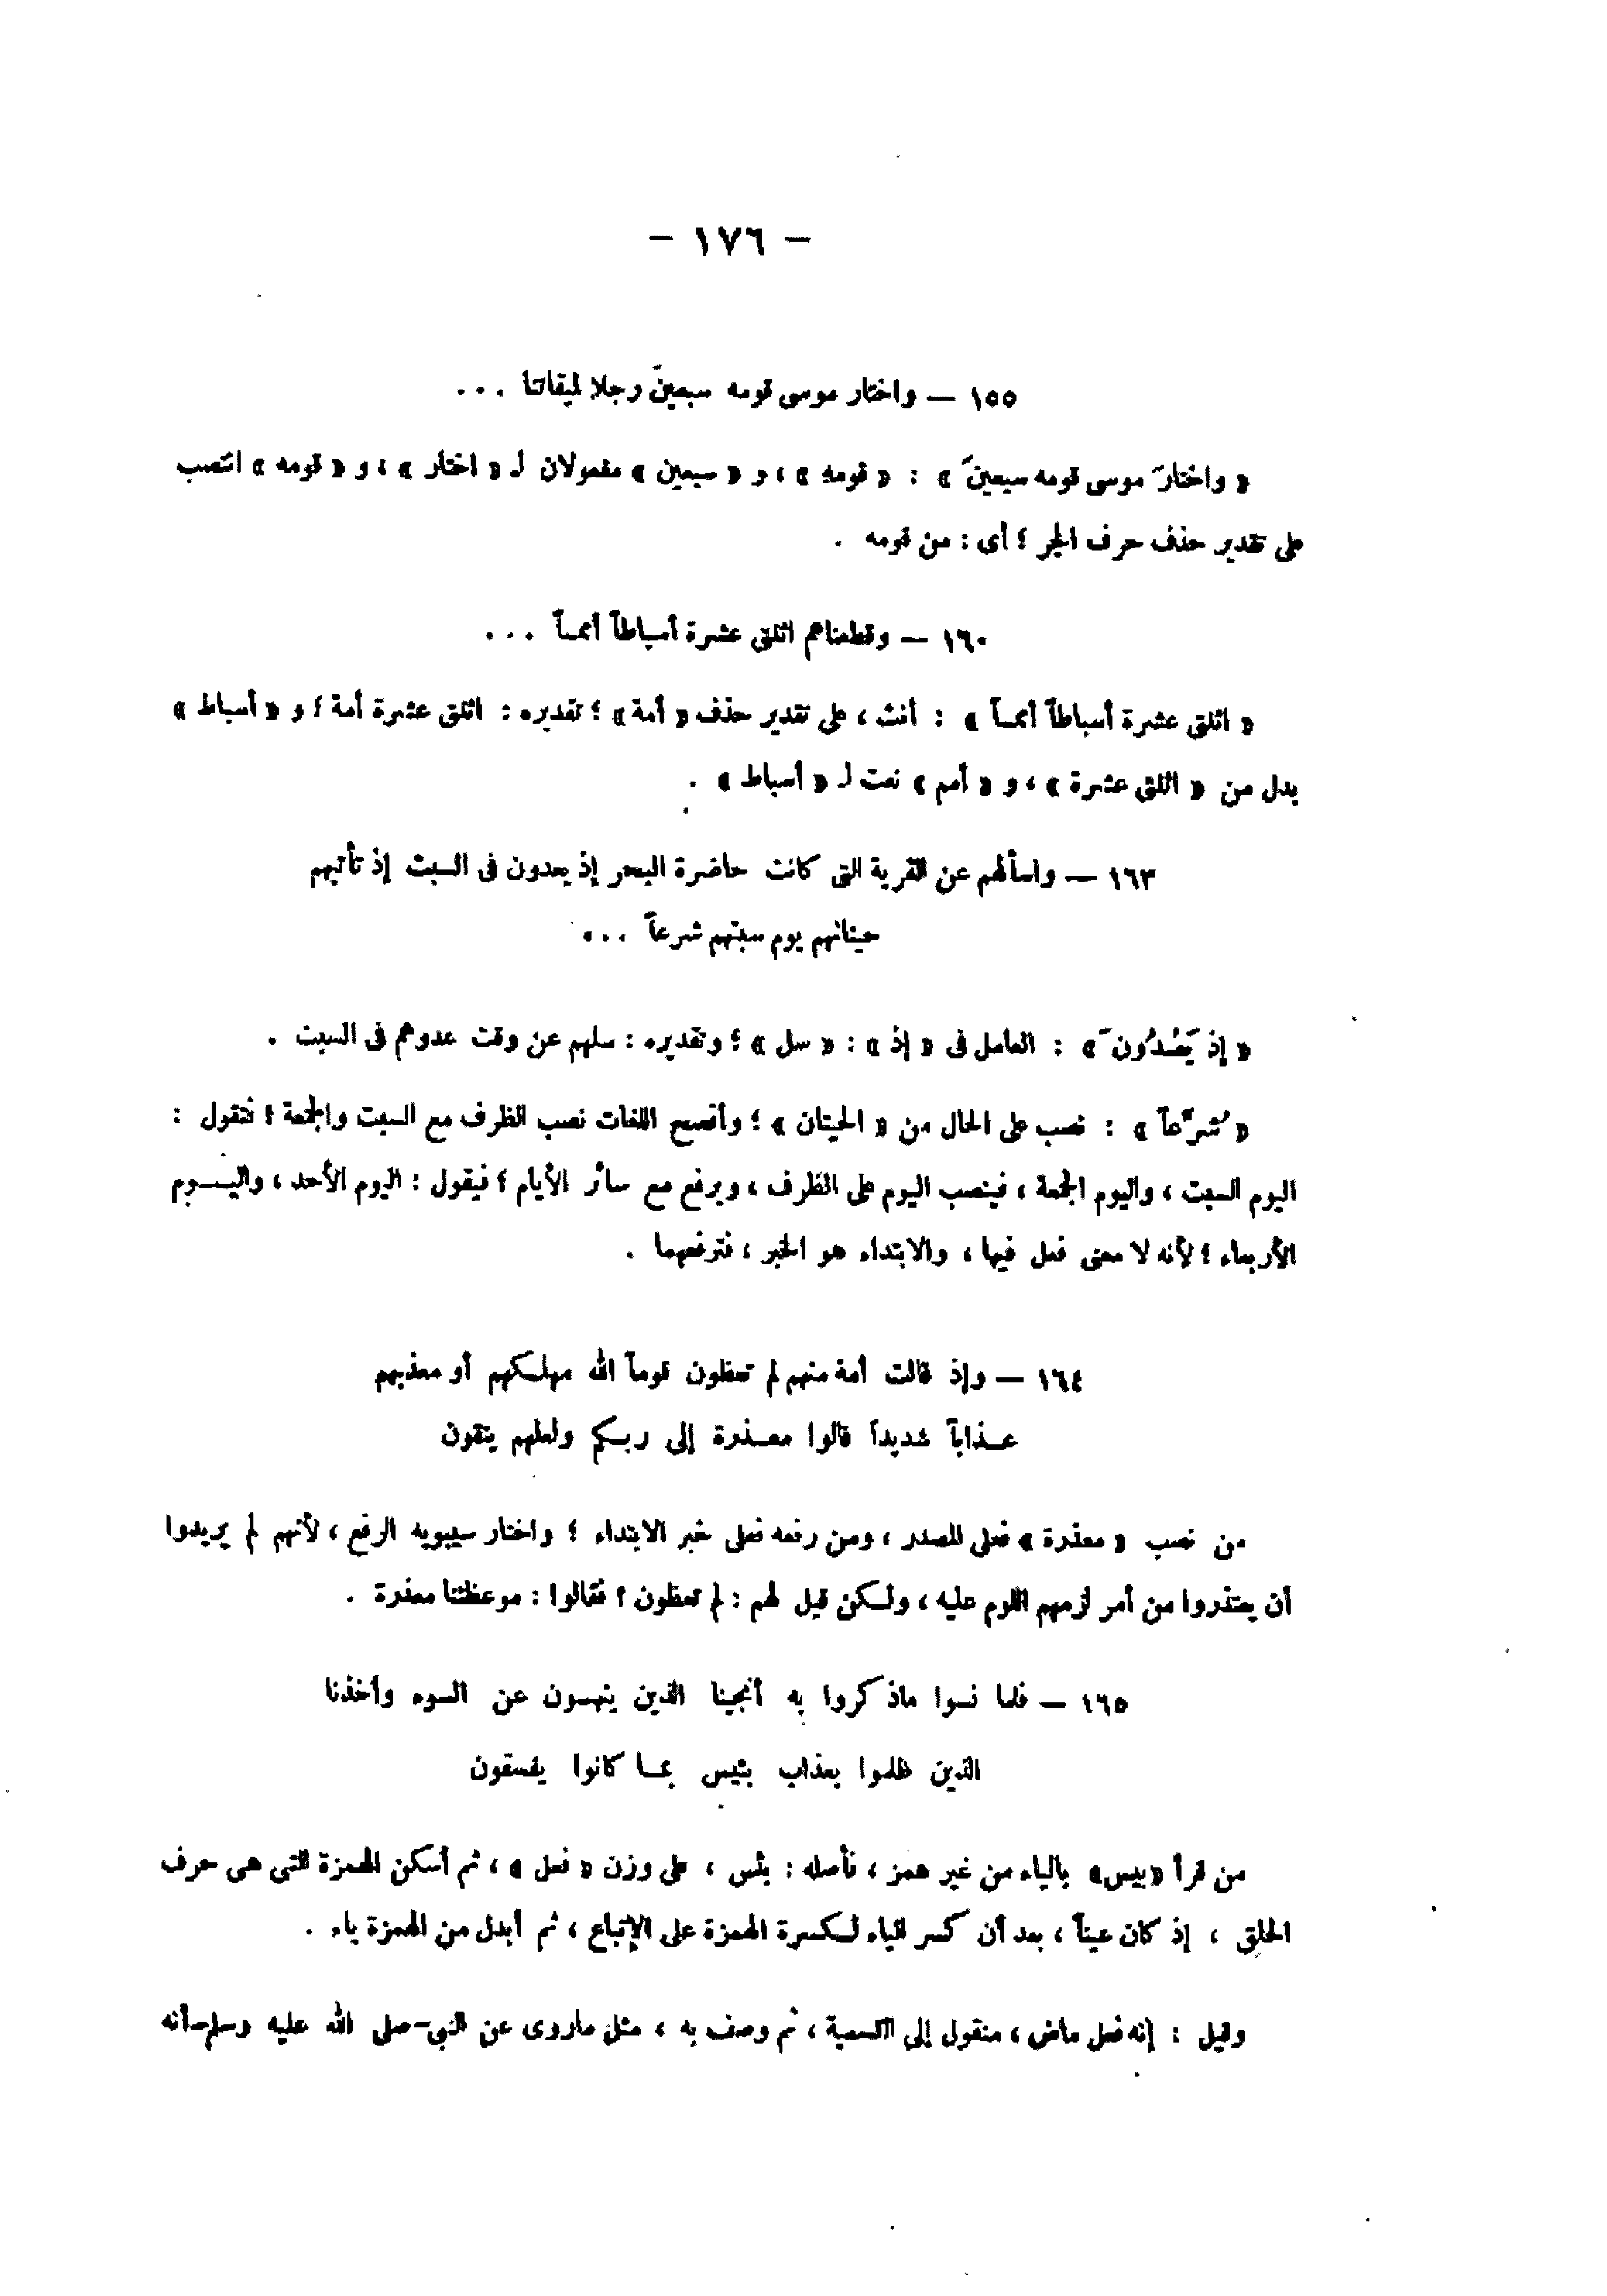 - ١٧٦ -
١٥٥ — واختار موسى قومه سبعينَ رجلا لميقاتنا ...
« واختارَ موسى قومه سبعينَ » : « قومه » ، و « سبعين » مفعولان لـ « اختار » ، و « قومه » انتصب
على تقدير حذف حرف الجر ؛ أى : من قومه .
١٦٠ — وقطعناهم اثنتى عشرة أسباطاً أمماً ...
« اثنتى عشرة أسباطاً أمماً » : أنث ، على تقدير حذف « أمة » ؛ تقديره : اثنتى عشرة أمة ؛ و « أسباط »
بدل من « اثنتى عشرة » ، و « أمم » نعت لـ « أسباط » .
١٦٣ — واسألهم عن القرية التى كانت حاضرة البحر إذ يعدون فى السبت إذ تأتيهم
حيتانهم يوم سبتهم شرعاً ...
« إذ يَعْدُونَ » : العامل فى « إذ » : « سل » ؛ وتقديره : سلهم عن وقت عدوهم فى السبت .
« شُرَّعاً » : نصب على الحال من « الحيتان » ؛ وأفصح اللغات نصب الظرف مع السبت والجمعة ؛ فتقول :
اليوم السبت ، واليوم الجمعة ، فينصب اليوم على الظرف ، ويرفع مع سائر الأيام ؛ فيقول : اليوم الأحد ، واليـــوم
الأربعاء ؛ لأنه لا معنى فعل فيها ، والابتداء هو الخبر ، فترفعهما .
١٦٤ — وإذ قالت أمة منهم لم تعظون قوماً الله مهلكهم أو معذبهم
عـذاباً شديداً قالوا معـذرة إلى ربـكم ولعلهم يتقون
من نصب « معذرة » فعلى المصدر ، ومن رفعه فعلى خبر الابتداء ؛ واختار سيبويه الرفع ، لأنهم لم يريدوا
أن يعتذروا من أمر لزمهم اللوم عليه ، ولـكن قيل لهم : لم تعظون ؟ فقالوا : موعظتنا معذرة .
١٦٥ — فلما نسوا ماذكروا به أنجينا الذين ينهـون عن السوء وأخذنا
الذين ظلموا بعذاب بئيس بمـا كانوا يفسقون
من قرأ « بيس » بالياء من غير همز ، فأصله : بئس ، على وزن « فعل » ، ثم أسكن الهمزة التى هى حرف
الحلق ، إذ كان عيناً ، بعد أن كسر الباء لـكسرة الهمزة على الإتباع ، ثم أبدل من الهمزة ياء .
وقيل : إنه فعل ماض ، منقول إلى التسمية ، ثم وصف به ، مثل ماروى عن النبى-صلى الله عليه وسلم-أنه